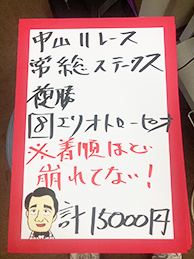 中山11レース
常総ステークス
複勝
[8]エリオトローピオ
※着順ほど
崩れてない!
計15000円